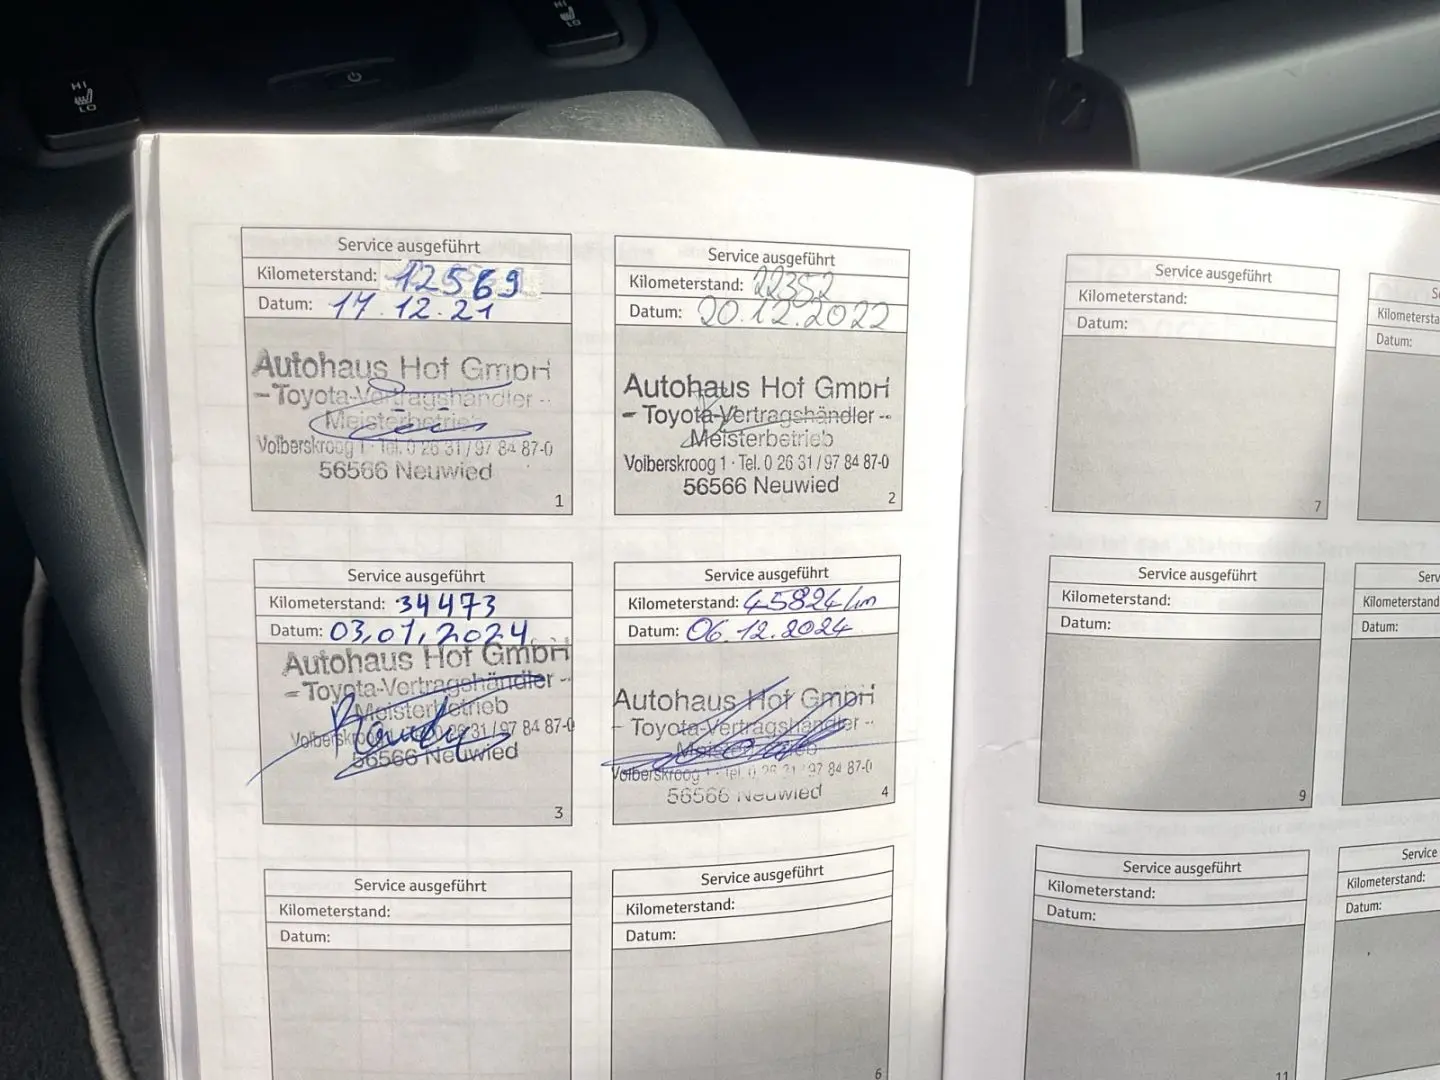 HI
LO
LO
Service ausgeführt
Kilometerstand: 12569
Datum: 17.12.21
Autohaus Hof GmbH
- Toyota-Vertragshändler -
Meisterbetrieb
Volberskroog 1 · Tel. 0 26 31 / 97 84 87-0
56566 Neuwied
1
Service ausgeführt
Kilometerstand: 22352
Datum: 20.12.2022
Autohaus Hof GmbH
- Toyota-Vertragshändler -
Meisterbetrieb
Volberskroog 1 · Tel. 0 26 31 / 97 84 87-0
56566 Neuwied
2
Service ausgeführt
Kilometerstand: 34473
Datum: 03.01.2024
Autohaus Hof GmbH
- Toyota-Vertragshändler -
Meisterbetrieb
Volberskroog 0 26 31 / 97 84 87-0
56566 Neuwied
3
Service ausgeführt
Kilometerstand: 45824 km
Datum: 06.12.2024
Autohaus Hof GmbH
- Toyota-Vertragshändler -
Meisterbetrieb
Volberskroog 1 · Tel. 0 26 31 / 97 84 87-0
56566 Neuwied
4
Service ausgeführt
Kilometerstand:
Datum:
Service ausgeführt
Kilometerstand:
Datum:
6
Service ausgeführt
Kilometerstand:
Datum:
7
Kilometersta
Datum:
Service ausgeführt
Kilometerstand:
Datum:
9
Serv
Kilometerstand
Datum:
Service ausgeführt
Kilometerstand:
Datum:
11
Service
Kilometerstand:
Datum: